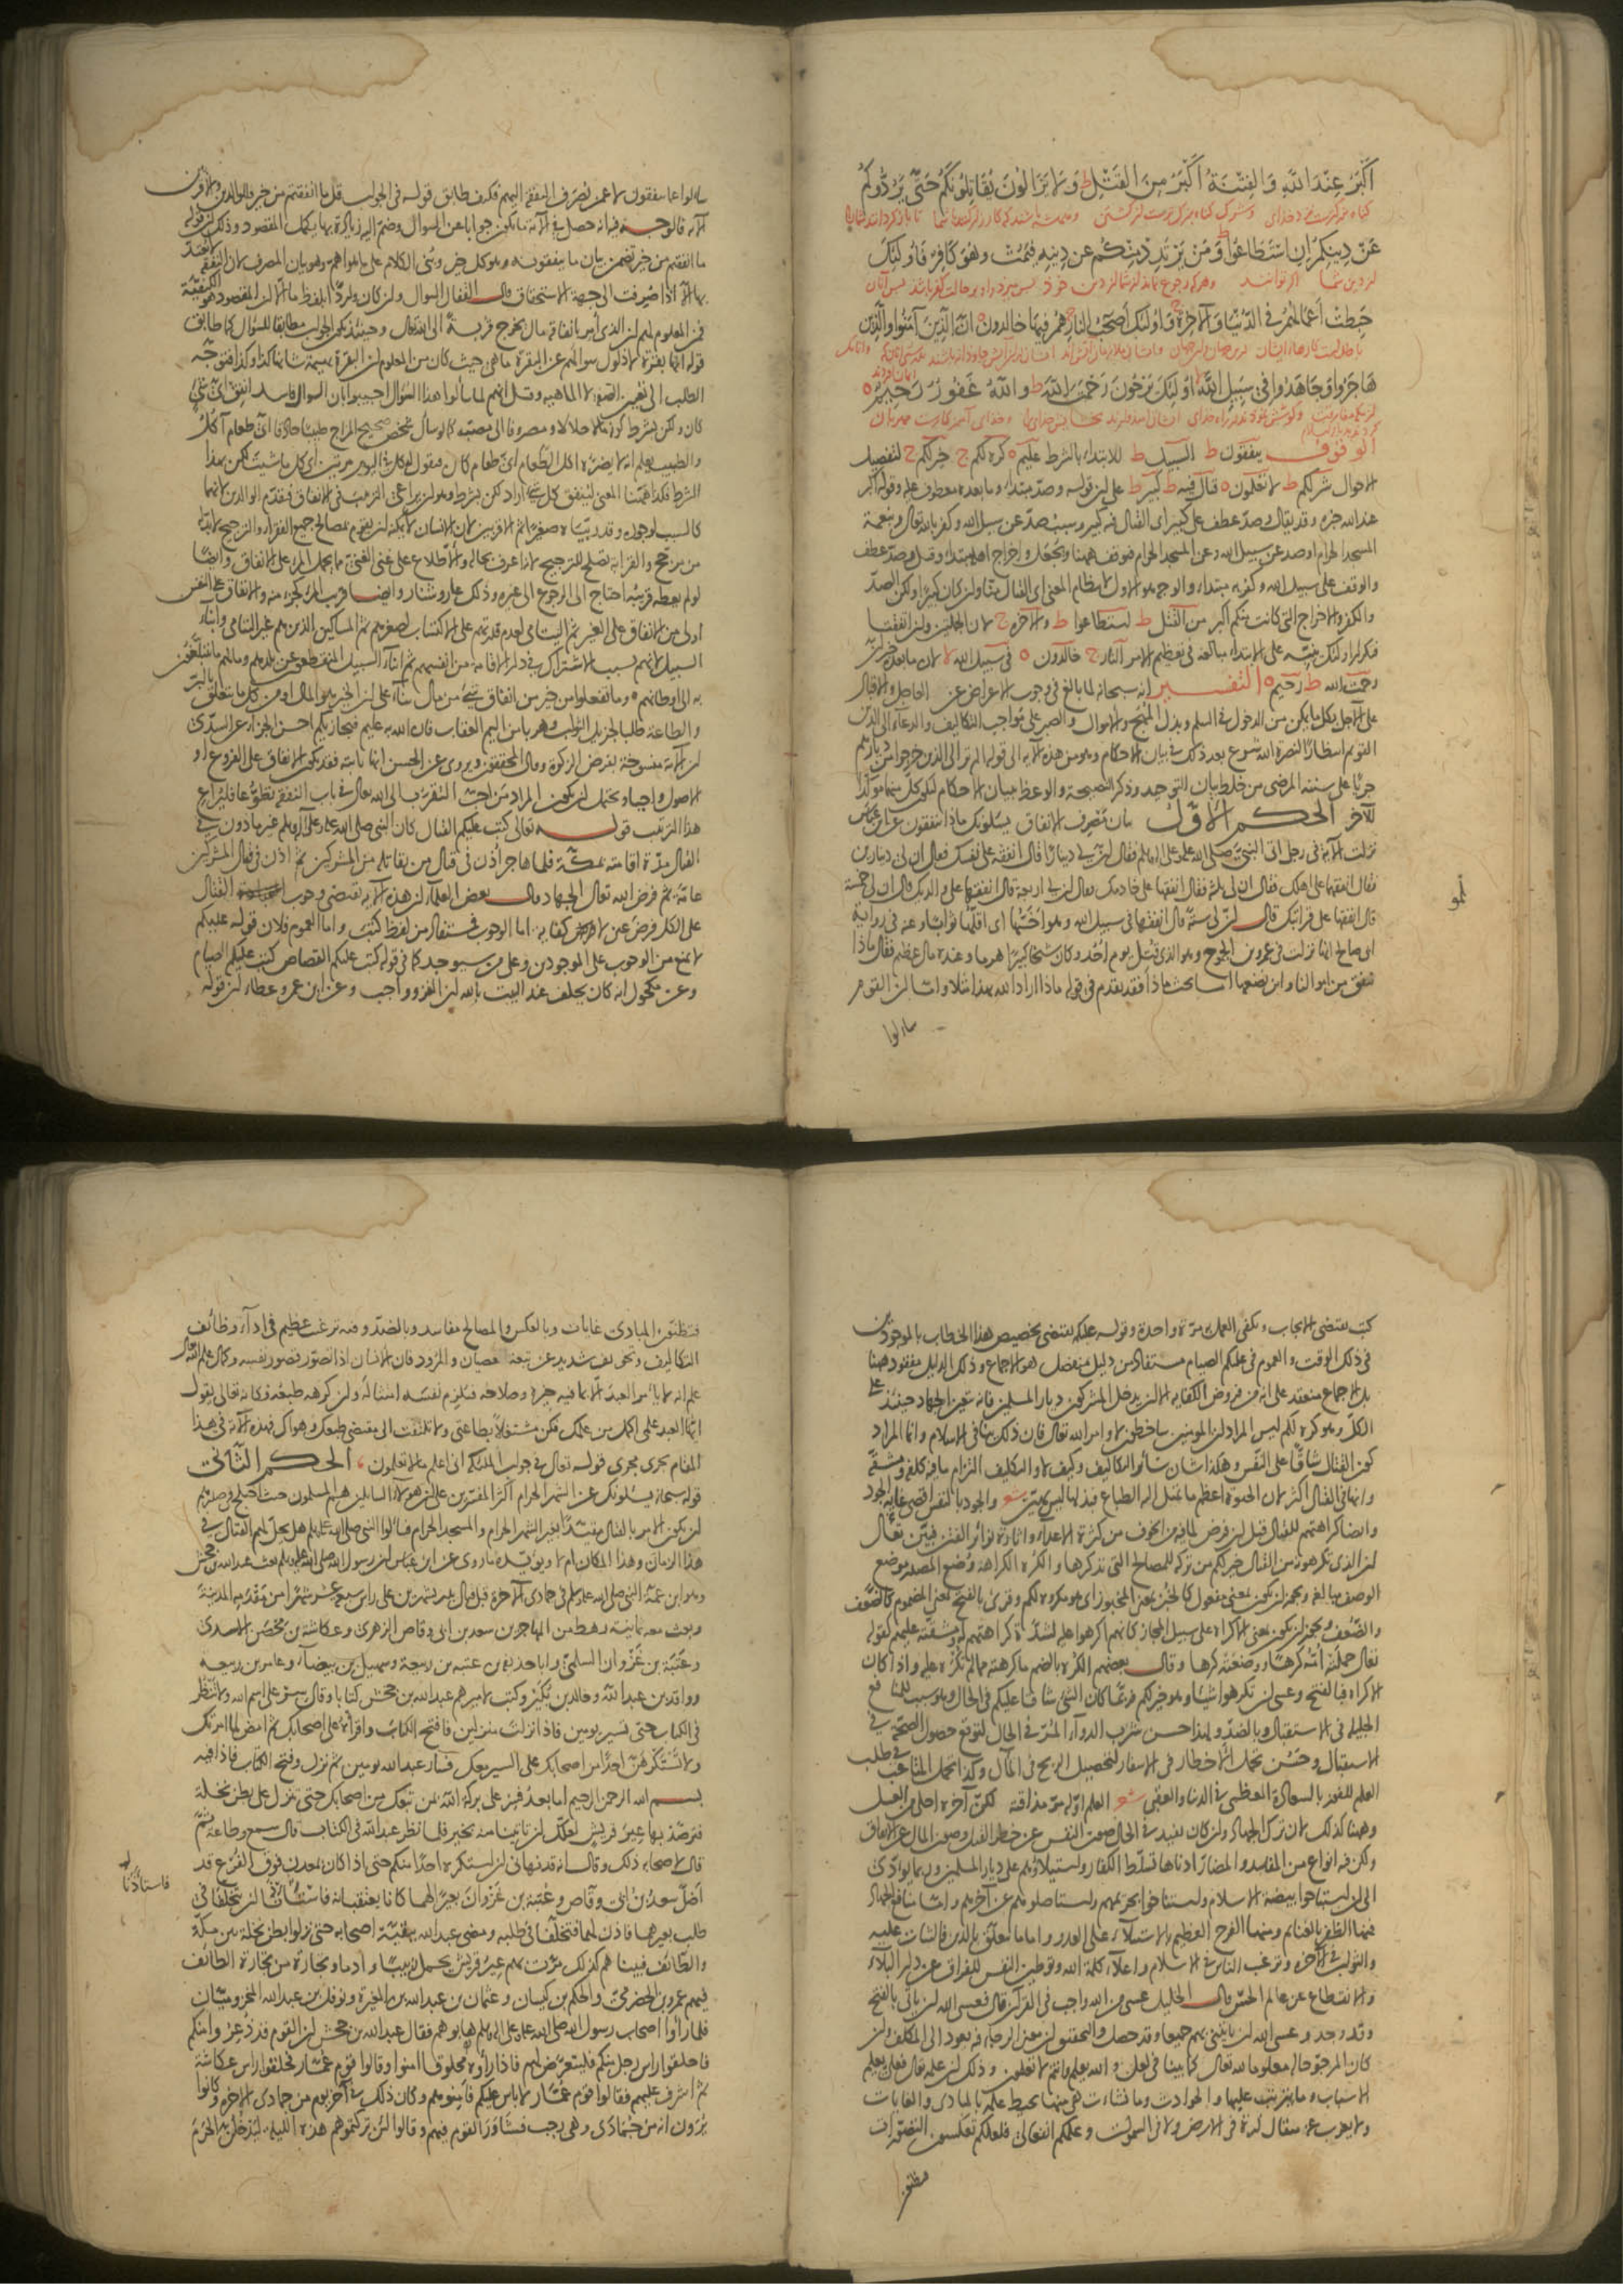 أَكْبَرُ عِنْدَ اللَّهِ وَالْفِتْنَةُ أَكْبَرُ مِنَ الْقَتْلِ ط وَلَا يَزَالُونَ يُقَاتِلُونَكُمْ حَتَّى يَرُدُّوكُمْ
عَنْ دِينِكُمْ إِنِ اسْتَطَاعُوا ط وَمَنْ يَرْتَدِدْ مِنْكُمْ عَنْ دِينِهِ فَيَمُتْ وَهُوَ كَافِرٌ فَأُولَئِكَ
حَبِطَتْ أَعْمَالُهُمْ فِي الدُّنْيَا وَالْآخِرَةِ ج وَأُولَئِكَ أَصْحَبُ النَّارِ ج هُمْ فِيهَا خَالِدُونَ ٥ إِنَّ الَّذِينَ آمَنُوا وَالَّذِينَ
هَاجَرُوا وَجَاهَدُوا فِي سَبِيلِ اللَّهِ لا أُولَئِكَ يَرْجُونَ رَحْمَتَ اللَّهِ ط وَاللَّهُ غَفُورٌ رَحِيمٌ ٥
الوقوف ينفقون ط السبيل ط للابتداء بالشرط عليم ٥ كره لكم ج خير لكم ج لتفصيل
الاحوال شر لكم ط لا تعلمون ٥ قتال فيه ط كبير ط على ان قوله وصد مبتدا وما بعده معطوف عليه وقوله اكبر
عند الله خبره وقد يقال وصد عطف على كبير اى القتال فيه كبير وسبب صد عن سبيل الله وكفر بالله تعالى وبنعمة
المسجد الحرام او صد عن سبيل الله وعن المسجد الحرام فوقف ههنا ويجعل واخراج اهله مبتدا وقيل وصد عطف
والوقف على سبيل الله وكفر به مبتدا والوجه هو الاول لانتظام المعنى اى القتال منا وان كان كبيرا ولكن الصد
والكفر والاخراج التى كانت منكم اكبر من القتل ط استطاعوا ط والآخرة ج لان الجملتين وان اتفقتا
فتكرار اولئك ينبه على الابتداء مبالغة فى تعظيم الامر النار ج خالدون ٥ فى سبيل الله لا لان ما بعده خبر ان
رحمت الله ط رحيم ٥ التفسير انه سبحانه لما بالغ فى وجوب الاعراض عن العاجل والاقبال
على الآجل بكل ما يمكن من الدخول فى السلم وبذل المهج والاموال والصبر على مواجب التكاليف والدعاء الى الدين
القويم انتظارا لنصرة الله شرع بعد ذلك فى بيان الاحكام وهو من هذه الآية الى قوله الم تر الى الذين خرجوا من ديارهم
جريا على سننه المرضى من خلط بيان التوحيد وذكر النصيحة والوعظ ببيان الاحكام ليكون كل منهما مؤكدا
للآخر الحكم الاول بيان مصرف الانفاق يسئلونك ماذا ينفقون عن ابن عباس
نزلت الآية فى رجل اتى النبى صلى الله عليه وعلى آله وسلم فقال ان لى دينارا قال انفقه على نفسك فقال ان لى دينارين
فقال انفقهما على اهلك فقال ان لى ثلثة فقال انفقها على خادمك فقال ان لى اربعة قال انفقها على والديك قال ان لى خمسة
قال انفقها على قرابتك قال ان لى ستة قال انفقها فى سبيل الله وهو اخسها اى اقلها ثوابا وعنه فى رواية
ابى صالح انها نزلت فى عمرو بن الجموح وهو الذى قتل يوم احد وكان شيخا كبيرا هرما وعنده مال عظيم فقال ماذا
ننفق من اموالنا واين نضعها اما بحث ماذا فقد تقدم فى قوله ماذا اراد الله بهذا مثلا واما ان القوم
سالوا
سالوا عما ينفقون لا عمن تصرف النفقة اليهم فكيف طابق قوله فى الجواب قل ما انفقتم من خير فللوالدين والاقربين
الآية فالوجه فيه انه حصل فى الآية ما يكون جوابا عن السؤال وضم اليه زيادة بها يكمل المقصود وذلك ان قوله
ما انفقتم من خير تضمن بيان ما ينفقونه وهو كل خير وبنى الكلام على ما هو اهم وهو بيان المصرف لان النفقة لا يعتد
بها الا اذا صرفت الى جهة الاستحقاق وقال القفال السؤال وان كان واردا بلفظ ما الا ان المقصود هو الكيفية
فمن المعلوم لهم ان الذى امر بانفاقه مال يخرج قربة الى الله تعالى وحينئذ يكون الجواب مطابقا للسؤال كما طابق
قوله انها بقرة لا ذلول سؤالهم عن البقرة ما هى حيث كان من المعلوم ان البقرة بهيمة شانها كذا وكذا فتوجه
الطلب الى تعيين الصفة لا الماهية وقيل انهم لما سألوا هذا السؤال اجيبوا بان السؤال فاسد انفق اى شىء
كان ولكن بشرط كونه مالا حلالا ومصروفا الى مصبه كما لو سأل شخص صحيح المزاج طبيبا حاذقا اى طعام آكل
والطبيب يعلم انه لا يضره اكل الطعام اى طعام كان فيقول له كل فى اليوم مرتين اى كل ما شئت لكن بهذا
الشرط فكذا ههنا المعنى لينفق كل شىء اراد لكن بشرط وهو ان يراعى الترتيب فى الانفاق فيقدم الوالدين لانهما
كالسبب لوجوده وقد ربياه صغيرا ثم الاقربين لان الانسان لا يمكنه ان يقوم بمصالح جميع الفقراء والترجيح لا بد له
من مرجح والقرابة تصلح للترجيح لانه اعرف بحاله والاطلاع على غنى الغنى مما يحمل المرء على الانفاق وايضا
لو لم يعطه قريبه احتاج الى الرجوع الى غيره وذلك عار وشنار وايضا قريب المرء كجزء منه والانفاق على النفس
اولى من الانفاق على الغير ثم اليتامى لعدم قدرتهم على الاكتساب لصغرهم ثم المساكين الذين هم غير اليتامى وابناء
السبيل لانهم بسبب الاشتراك فى دار الاقامة من انفسهم ثم ابناء السبيل المنقطعون عن بلدهم ومالهم ما يتبلغون
به الى اوطانهم ٥ وما تفعلوا من خير من انفاق شىء من مال بناء على ان الخير هو المال او من كل ما يتعلق بالبر
والطاعة طلبا لجزيل الثواب وهربا من اليم العقاب فان الله به عليم فيجازيكم احسن الجزاء عن السدى
ان الآية منسوخة بفرض الزكوة وقال المحققون ويروى عن الحسن انها ثابتة فقد يكون الانفاق على الفروع او
الاصول واجبا ويحتمل ان يكون المراد من احب التقرب الى الله تعالى فى باب النفقة تطوعا فليراع
هذا الترتيب قوله تعالى كتب عليكم القتال كان النبى صلى الله عليه وعلى آله وسلم غير ماذون فى
القتال مدة اقامته بمكة فلما هاجر اذن فى قتال من يقاتله من المشركين ثم اذن فى قتال المشركين
عامة ثم فرض الله تعالى الجهاد قال بعض العلماء ان هذه الآية تقتضى وجوب القتال
على الكل فرض عين لا فرض كفاية اما الوجوب فمستفاد من لفظ كتب واما العموم فلان قوله عليكم
لا يمنع من الوجوب على الموجودين وعلى من سيوجد كما فى قوله كتب عليكم القصاص كتب عليكم الصيام
وعن مكحول انه كان يحلف عند البيت بالله ان الغزو واجب وعن ابن عمر وعطاء ان قوله
كتب يقتضى الايجاب ويكفى العمل به مرة واحدة وقوله عليكم يقتضى تخصيص هذا الخطاب بالموجودين
فى ذلك الوقت والعموم فى عليكم الصيام مستفاد من دليل منفصل هو الاجماع وذلك الدليل مفقود ههنا
بل الاجماع منعقد على انه من فروض الكفاية الا ان يدخل المشركون ديار المسلمين فانه يتعين الجهاد حينئذ على
الكل وهو كره لكم ليس المراد ان المومنين ساخطون لاوامر الله تعالى فان ذلك ينافى الاسلام وانما المراد
كون القتال شاقا على النفس وهكذا شان سائر التكاليف وكيف لا والتكليف الزام ما فيه كلفة ومشقة
وانها فى القتال اكثر لان الحيوة اعظم ما تميل اليه الطباع فبذلها ليس بهين شعر والجود بالنفس اقصى غاية الجود
وايضا كراهتهم للقتال قبل ان فرض لما فيه من الخوف من كثرة الاعداء واثارة نوائر الفتن فبين تعالى
ان الذى تكرهونه من القتال خير لكم من تركه للمصالح التى نذكرها والكره الكراهة وضع المصدر موضع
الوصف مبالغة ويجوز ان يكون بمعنى مفعول كالخبز بمعنى المخبوز اى هو مكروه لكم وقرئ بالفتح بمعنى المضموم كالضعف
والضعف ويجوز ان يكون بمعنى الاكراه على سبيل المجاز كانهم اكرهوا عليه لشدة كراهتهم له ومشقته عليهم كقوله
تعالى حملته امه كرها ووضعته كرها وقال بعضهم الكره بالضم ما كرهته مما لم تكره عليه واذا كان
الاكراه فبالفتح وعسى ان تكرهوا شيئا وهو خير لكم فربما كان الشىء شاقا عليكم فى الحال وهو سبب للمنافع
الجليلة فى الاستقبال وبالضد ولهذا حسن شرب الدواء المر فى الحال لتوقع حصول الصحة فى
الاستقبال وحسن تحمل الاخطار فى الاسفار لتحصيل الربح فى المآل وكذا تحمل المتاعب فى طلب
العلم للفوز بالسعادة العظمى فى الدنيا والعقبى شعر العلم اوله مر مذاقته لكن آخره احلى من العسل
وههنا كذلك لان ترك الجهاد وان كان يفيد فى الحال صون النفس عن خطر القتل وصون المال عن الانفاق
ولكن فيه انواع من المفاسد والمضار ادناها تسلط الكفار واستيلاؤهم على ديار المسلمين وربما يؤدى
الى ان يستبيحوا بيضة الاسلام ويستناخوا بحريمهم ويستاصلوهم عن آخرهم واما منافع الجهاد
فمنها الظفر بالغنائم ومنها الفرح العظيم بالاستيلاء على العدو واما ما يتعلق بالدين فالثبات عليه
والثواب فى الآخرة وترغيب الناس فى الاسلام واعلاء كلمة الله وتوطين النفس للفراق عن دار البلاء
والانقطاع عن عالم الحس قال الخليل عسى من الله واجب فى القرآن قال فعسى الله ان ياتى بالفتح
وقد وجد وعسى الله ان ياتينى بهم جميعا وقد حصل والتحقيق ان معنى الرجاء فيه يعود الى المكلف وان
كان المرجو حاله معلوما لله تعالى كما بينا فى لعل والله يعلم وانتم لا تعلمون وذلك ان علمه تعالى فعلى يعلم
الاسباب وما يترتب عليها والحوادث وما نشات هى منها يحيط علمه بالمبادى والغايات
ولا يعزب عنه مثقال ذرة فى الارض ولا فى السموات وعلمكم انفعالى فلعلكم تعكسون التصورات
فتظنون
فتظنون المبادى غايات وبالعكس والمصالح مفاسد وبالضد وفيه ترغيب عظيم فى اداء وظائف
التكاليف وتخويف شديد عن تبعة العصيان والمرود فان الانسان اذا تصور قصور نفسه وكمال علم الله تعالى
علم انه لا يامر العبد الا بما فيه خيره وصلاحه فيلزم نفسه امتثاله وان كرهه طبعه فكانه تعالى يقول
ايها العبد علمى اكمل من علمك فكن مشتغلا بطاعتى ولا تلتفت الى مقتضى طبعك وهواك فهذه الآية فى هذا
المقام تجرى مجرى قوله تعالى فى جواب الملئكة انى اعلم ما لا تعلمون الحكم الثانى
قوله سبحانه يسئلونك عن الشهر الحرام اكثر المفسرين على ان هؤلاء السائلين هم المسلمون حيث اختلج فى صدرهم
ان يكون الامر بالقتال مقيدا بغير الشهر الحرام والمسجد الحرام فسالوا النبى صلى الله عليه وسلم هل يحل لهم القتال فى
هذا الزمان وهذا المكان ام لا ويؤيده ما روى عن ابن عباس ان رسول الله صلى الله عليه وسلم بعث عبد الله بن جحش
وهو ابن عمة النبى صلى الله عليه وسلم فى جمادى الآخرة قبل قتال بدر بشهرين على راس سبعة عشر شهرا من مقدمه المدينة
وبعث معه ثمانية رهط من المهاجرين سعد بن ابى وقاص الزهرى وعكاشة بن محصن الاسدى
وعتبة بن غزوان السلمى وابا حذيفة بن عتبه بن ربيعة وسهيل بن بيضاء وعامر بن ربيعه
وواقد بن عبد الله وخالد بن بكير وكتب لاميرهم عبد الله بن جحش كتابا وقال سر على اسم الله ولا تنظر
فى الكتاب حتى تسير يومين فاذا نزلت منزلين فافتح الكتاب واقرأه على اصحابك ثم امض لما امرتك
ولا تستكرهن احدا من اصحابك على السير معك فسار عبد الله يومين ثم نزل وفتح الكتاب فاذا فيه
بسم الله الرحمن الرحيم اما بعد فسر على بركة الله بمن تبعك من اصحابك حتى تنزل على بطن نخلة
فترصد بها عير قريش لعلك ان تاتينا منه بخير فلما نظر عبد الله فى الكتاب قال سمع وطاعة ثم
قال لاصحابه ذلك وقال انه قد نهانى ان استكره احدا منكم حتى اذا كان بمعدن فوق الفرع قد
اضل سعد بن ابى وقاص وعتبة بن غزوان بعيرا لهما كانا يعتقبانه فاستاذنا ان يتخلفا فى
فاستاذنا
طلب بعيرهما فاذن لهما فتخلفا فى طلبه ومضى عبد الله ببقية اصحابه حتى نزلوا بطن نخلة بين مكة
والطائف فبينا هم كذلك مرت بهم عير قريش يحمل زبيبا وادما وتجارة من تجارة الطائف
فيهم عمرو بن الحضرمى والحكم بن كيسان وعثمان بن عبد الله بن المغيرة ونوفل بن عبد الله المخزوميان
فلما رأوا اصحاب رسول الله صلى الله عليه وعلى آله وسلم هابوهم فقال عبد الله بن جحش ان القوم قد ذعروا منكم
فاحلقوا راس رجل منكم فليتعرض لهم فاذا رأوه محلوقا امنوا وقالوا قوم عمار فحلقوا راس عكاشة
ثم اشرف عليهم فقالوا قوم عمار لا باس عليكم فامنوهم وكان ذلك فى آخر يوم من جمادى الآخرة وكانوا
يرون انه من جمادى وهى رجب فتشاور القوم فيهم وقالوا لئن تركتموهم هذه الليلة ليدخلن الحرم